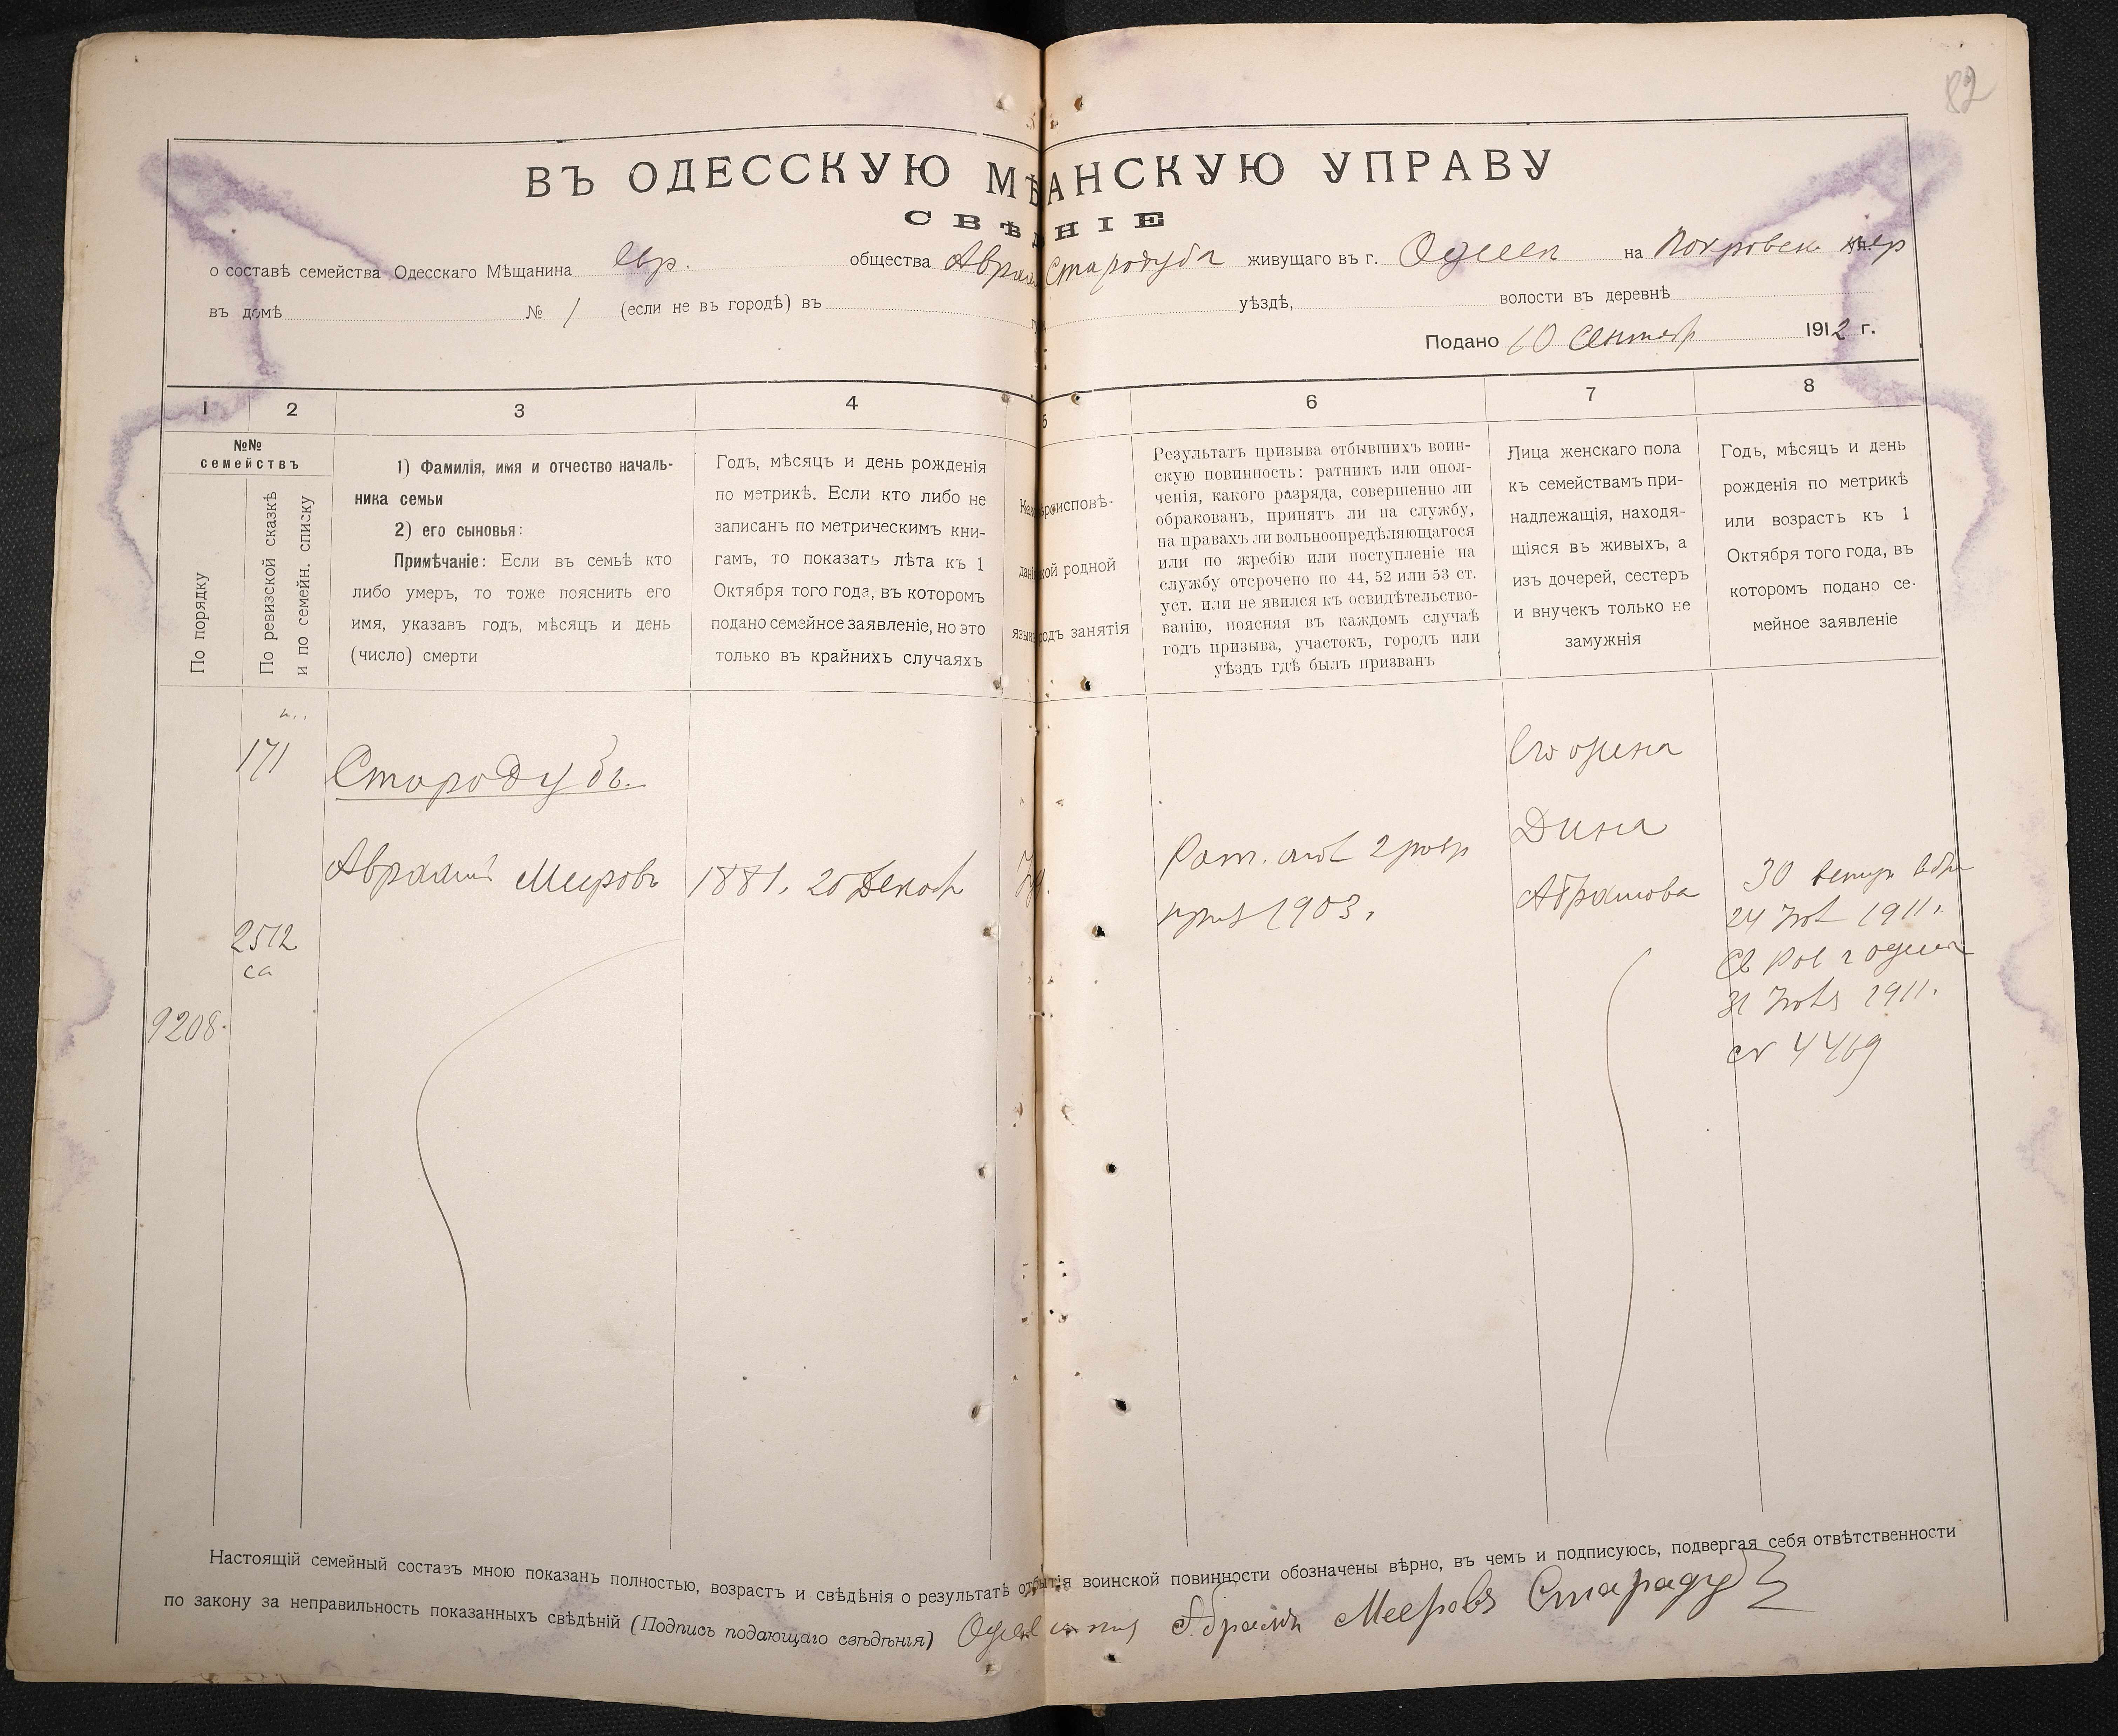 82
ВЪ ОДЕССКУЮ МѢ АНСКУЮ УПРАВУ
СВѢД НІЕ
о составѣ семейства Одесскаго Мѣщанина евр. общества Авра Стародуба живущаго въ г. Одесса на Покровск пер
въ домѣ № 1 (если не въ городѣ) въ уѣздѣ, волости въ деревнѣ
Подано 10 Сентяб 1912 г.
1 2 3 4 5 6 7 8
№№ семействъ
По порядку
По ревизской сказкѣ
и по семейн. списку
1) Фамилія, имя и отчество началь-
ника семьи
2) его сыновья:
Примѣчаніе: Если въ семьѣ кто
либо умеръ, то тоже пояснить его
имя, указавъ годъ, мѣсяцъ и день
(число) смерти
Годъ, мѣсяцъ и день рожденія
по метрикѣ. Если кто либо не
записанъ по метрическимъ кни-
гамъ, то показать лѣта къ 1
Октября того года, въ которомъ
подано семейное заявленіе, но это
только въ крайнихъ случаяхъ
роисповѣ-
кой родной
языкъ родъ занятія
Результатъ призыва отбывшихъ воин-
скую повинность: ратникъ или опол-
ченія, какого разряда, совершенно ли
обракованъ, принятъ ли на службу,
на правахъ ли вольноопредѣляющагося
или по жребію или поступленіе на
службу отсрочено по 44, 52 или 53 ст.
уст. или не явился къ освидѣтельство-
ванію, поясняя въ каждомъ случаѣ
годъ призыва, участокъ, городъ или
уѣздъ гдѣ былъ призванъ
Лица женскаго пола
къ семействамъ при-
надлежащія, находя-
щіяся въ живыхъ, а
изъ дочерей, сестеръ
и внучекъ только не
замужнія
Годъ, мѣсяцъ и день
рожденія по метрикѣ
или возрастъ къ 1
Октября того года, въ
которомъ подано се-
мейное заявленіе
171
Стародубъ.
Его жена
Дина
Абрамова
Авраамъ Мееровъ
1881. 20 Декаб
Рат. опол 2 разр
1903.
2512
са
9208.
30
24 1911.
31 1911.
4469
Настоящій семейный составъ мною показанъ полностью, возрастъ и свѣдѣнія о результатѣ отбытія воинской повинности обозначены вѣрно, въ чемъ и подписуюсь, подвергая себя отвѣтственности
по закону за неправильность показанныхъ свѣдѣній (Подпись подающаго свѣдѣнія) Абрамъ Мееровъ Старадуб